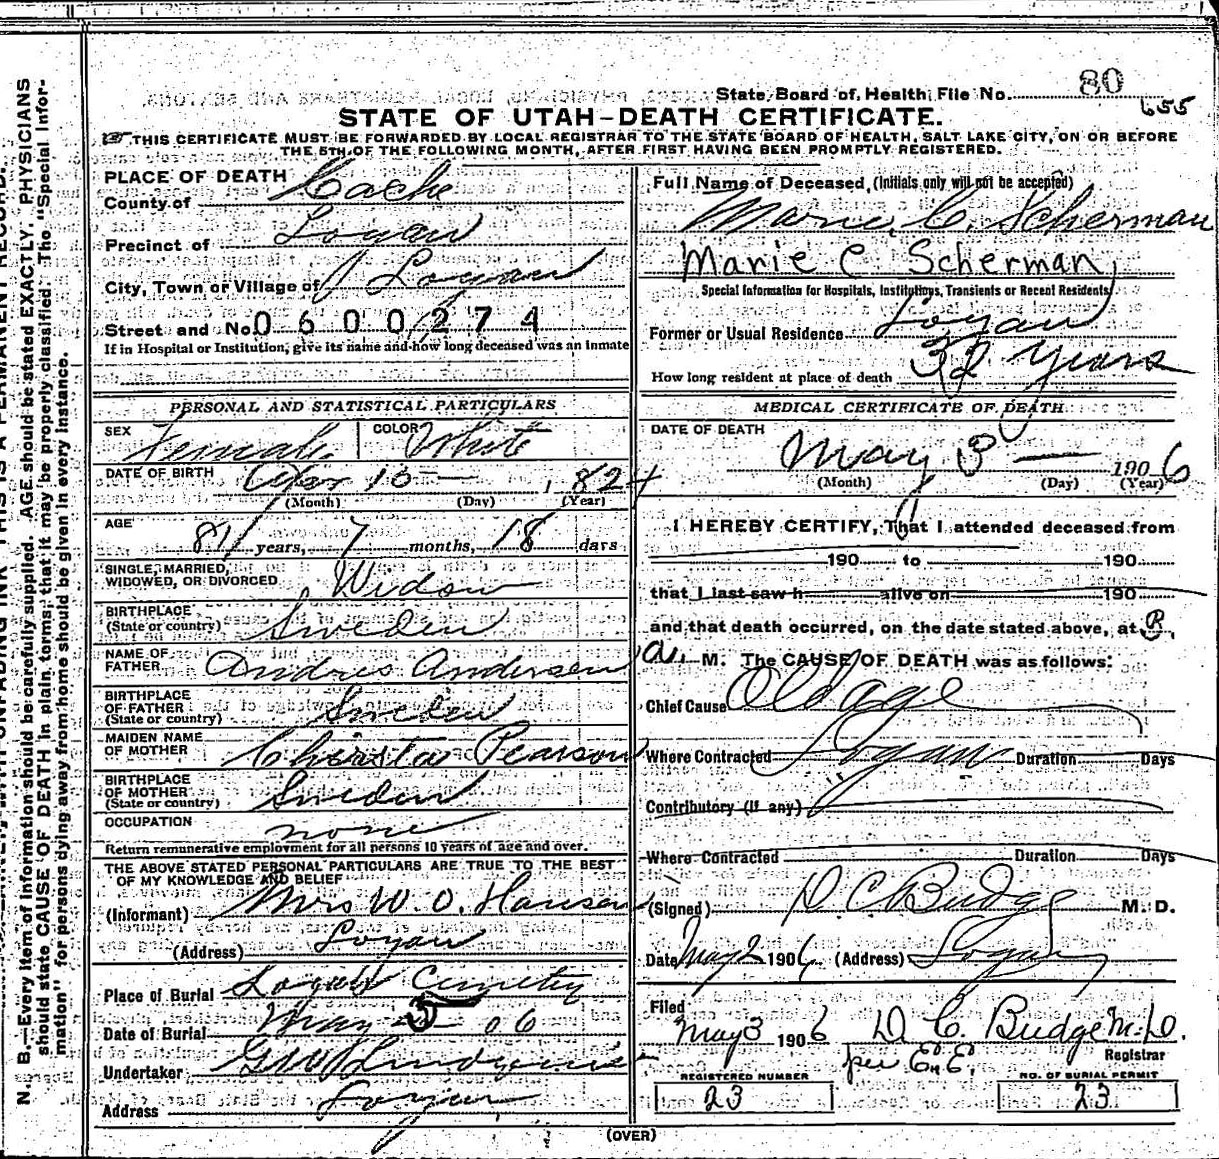 State Board of Health File No. 80
655
STATE OF UTAH-DEATH CERTIFICATE.
THIS CERTIFICATE MUST BE FORWARDED BY LOCAL REGISTRAR TO THE STATE BOARD OF HEALTH, SALT LAKE CITY, ON OR BEFORE
THE 5TH OF THE FOLLOWING MONTH, AFTER FIRST HAVING BEEN PROMPTLY REGISTERED.
PLACE OF DEATH
County of Cache
Precinct of Logan
City, Town or Village of Logan
Street and No. 0600274
If in Hospital or Institution, give its name and how long deceased was an inmate
PERSONAL AND STATISTICAL PARTICULARS
SEX Female COLOR White
DATE OF BIRTH 15 — 1824
(Month) (Day) (Year)
AGE 81 years, 7 months, 18 days
SINGLE, MARRIED,
WIDOWED, OR DIVORCED Widow
BIRTHPLACE
(State or country) Sweden
NAME OF
FATHER Andres Andersen
BIRTHPLACE
OF FATHER
(State or country) Sweden
MAIDEN NAME
OF MOTHER Christa Pearson
BIRTHPLACE
OF MOTHER
(State or country) Sweden
OCCUPATION none
Return remunerative employment for all persons 10 years of age and over.
THE ABOVE STATED PERSONAL PARTICULARS ARE TRUE TO THE BEST
OF MY KNOWLEDGE AND BELIEF
(Informant) Mrs W. O. Hansen
(Address) Logan
Place of Burial Logan Cemetery
Date of Burial May 5 — 06
Undertaker
Address Logan
Full Name of Deceased, (Initials only will not be accepted)
Marie C. Scherman
Marie C Scherman
Special Information for Hospitals, Institutions, Transients or Recent Residents
Former or Usual Residence Logan
How long resident at place of death 32 years
MEDICAL CERTIFICATE OF DEATH
DATE OF DEATH
May 3 — 1906
(Month) (Day) (Year)
I HEREBY CERTIFY, That I attended deceased from
190 to 190
that I last saw h alive on 190
and that death occurred, on the date stated above, at
a. M. The CAUSE OF DEATH was as follows:
Chief Cause Old age
Where Contracted Logan Duration Days
Contributory (if any)
Where Contracted Duration Days
(Signed) D C Budge M. D.
Date May 1906 (Address) Logan
Filed
May 3 1906 D. C. Budge M.D.
per E. E. Registrar
REGISTERED NUMBER
23
NO. OF BURIAL PERMIT
23
(OVER)
N. B.—Every item of information should be carefully supplied. AGE should be stated EXACTLY. PHYSICIANS
should state CAUSE OF DEATH in plain terms, that it may be properly classified. The "Special Infor-
mation" for persons dying away from home should be given in every instance.